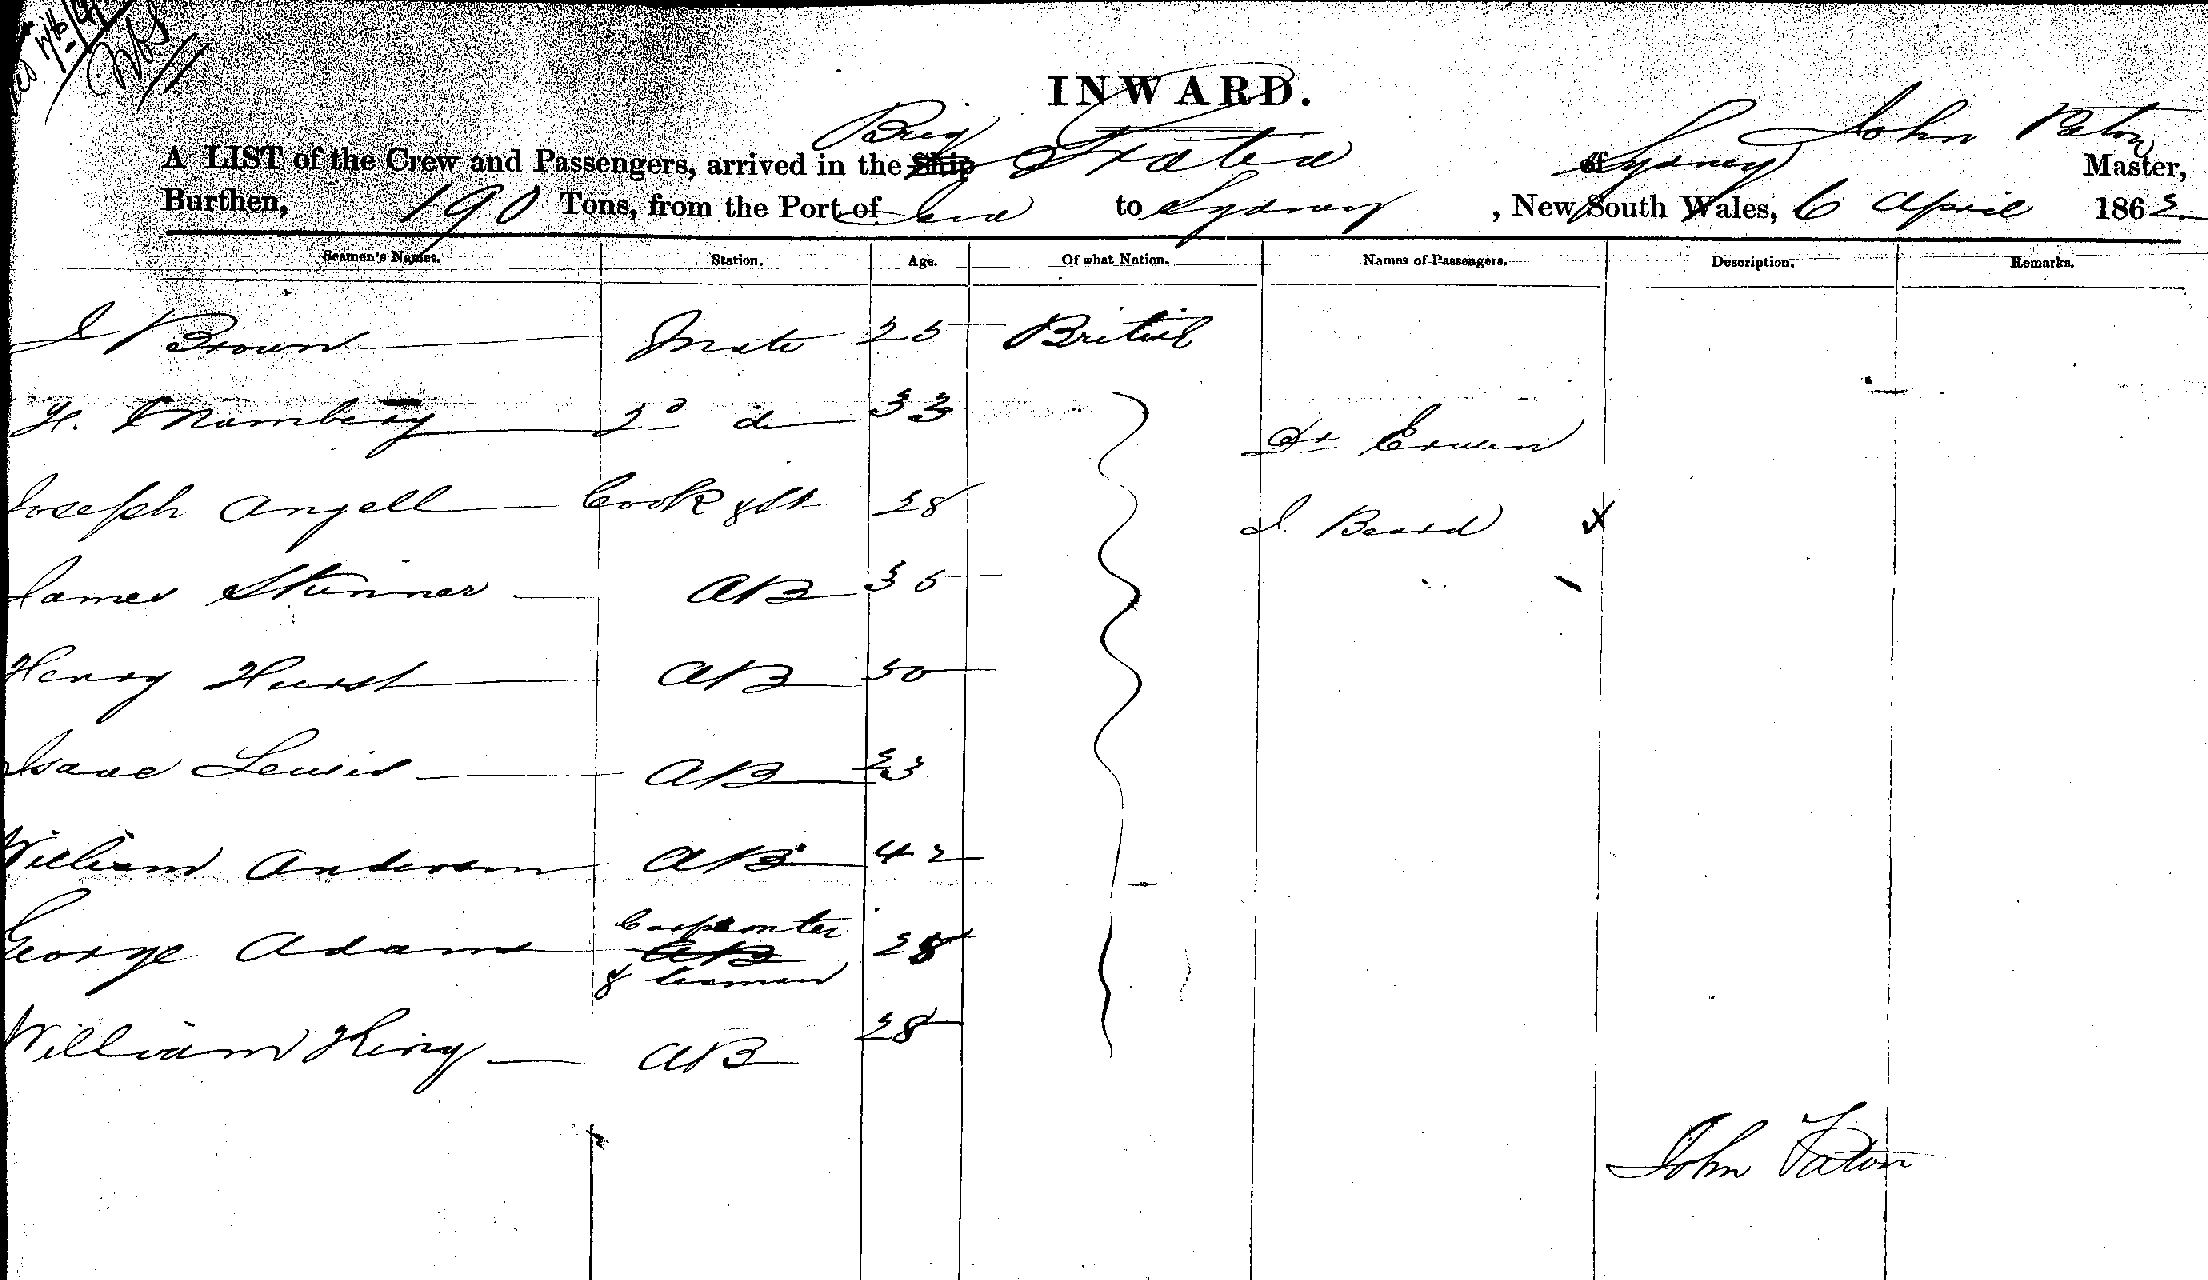 INWARD.
Brig John Paton
A LIST of the Crew and Passengers, arrived in the Ship of Sydney Master,
Burthen, 190 Tons, from the Port of to Sydney , New South Wales, 6 April 1862
Seamen's Names. Station. Age. Of what Nation. Names of Passengers. Description. Remarks.
J Brown Mate 25 British
H. 2d do 33 Dr
Joseph Angell Cook & St 28 J. Beard x
James Skinner AB 35
Henry Hurst AB 50
Isaac Lewis AB 23
William Anderson AB 42
Carpenter
George Adams AB 28
& seaman
William King AB 28
John Paton